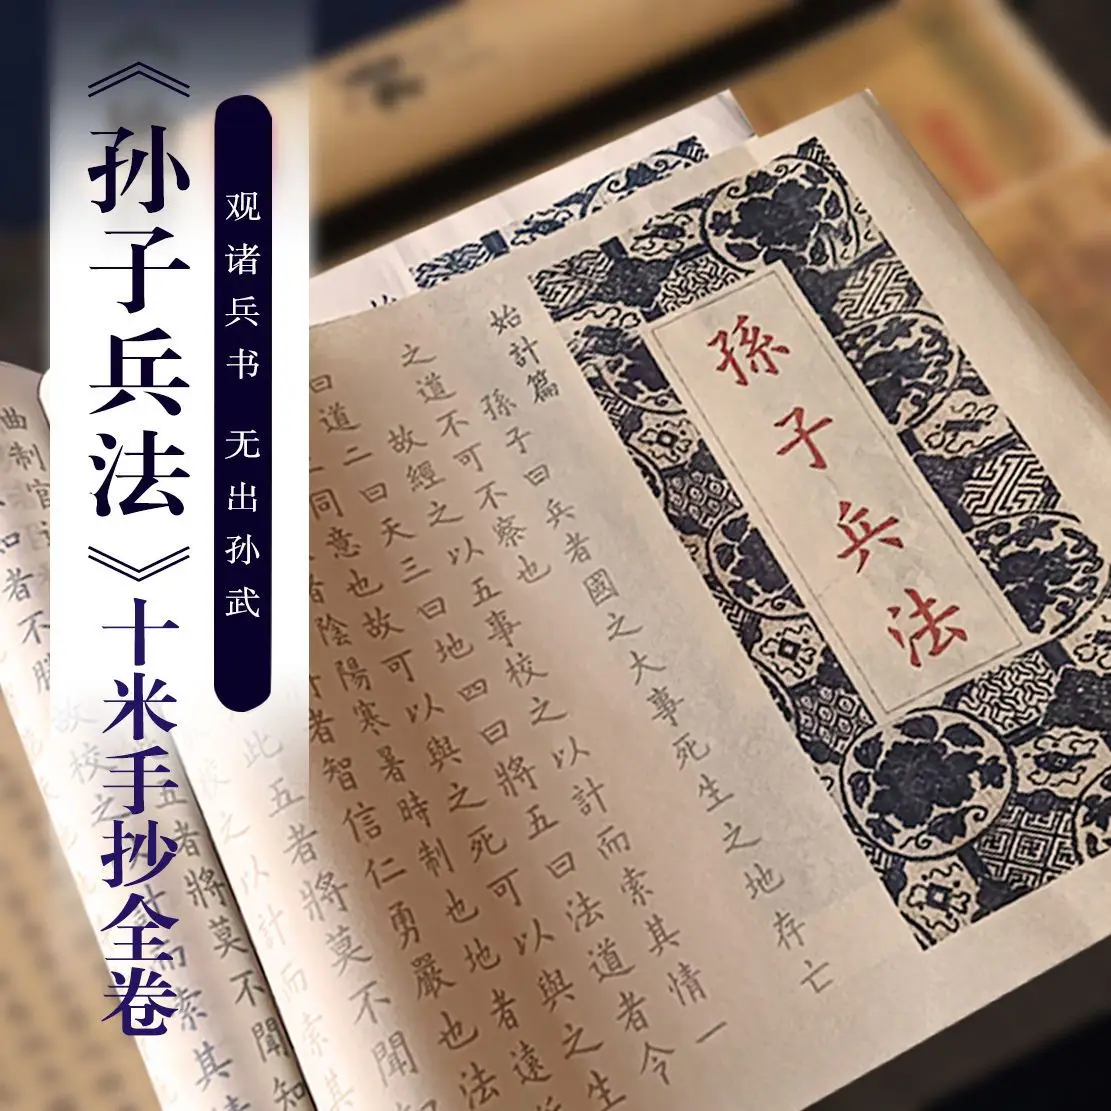 《孙子兵法》十米手抄全卷
观诸兵书 无出孙武
孫子兵法
始計篇
孫子曰兵者國之大事死生之地存亡
之道不可不察也
故經之以五事校之以計而索其情一
曰道二曰天三曰地四曰將五曰法道者令
同意也故可以與之死可以與之生
者陰陽寒暑時制也地者遠
者智信仁勇嚴也法
此五者將莫不聞
校之以計而索其
曲制官
知者不勝
故校之計而索其
五者將莫不聞知